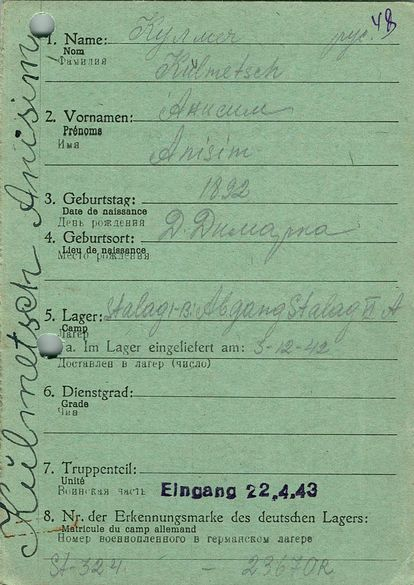 48
1. Name: Кулмеч рус.
Nom
Фамилия Külmetsch
2. Vornamen: Анисим
Prénoms
Имя Anisim
3. Geburtstag: 1892
Date de naissance
День рождения
4. Geburtsort: Д. Димарка
Lieu de naissance
Место рождения
5. Lager: Stalag I-B. Abgang Stalag VI A
Camp
Лагер
a. Im Lager eingeliefert am: 3-12-42
Доставлен в лагер (число)
6. Dienstgrad:
Grade
Чин
7. Truppenteil:
Unité
Воинская часть Eingang 22.4.43
8. Nr. der Erkennungsmarke des deutschen Lagers:
Matricule du camp allemand
Номер военнопленного в германском лагере
St-324 - 23670R
Külmetsch Anisim